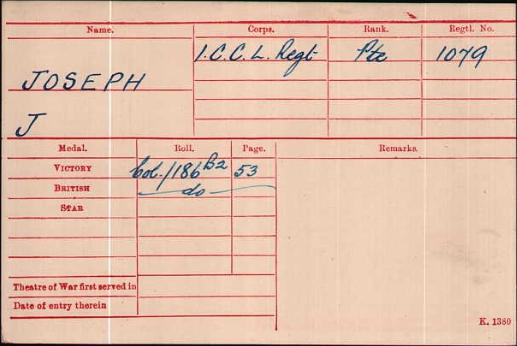 Name. Corps. Rank. Regtl. No.
JOSEPH I.C.C.L. Regt Pte 1079
J
Medal. Roll. Page. Remarks.
VICTORY Col./186 B2 53
BRITISH do
STAR
Theatre of War first served in
Date of entry therein
K. 1380